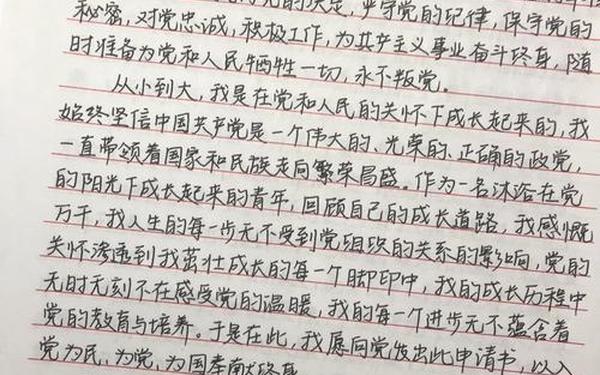 党的决定，严守党的纪律，保守党的
秘密，对党忠诚，积极工作，为共产主义事业奋斗终身，随
时准备为党和人民牺牲一切，永不叛党。
从小到大，我是在党和人民的关怀下成长起来的，我
始终坚信中国共产党是一个伟大的、光荣的、正确的政党，
一直带领着国家和民族走向繁荣昌盛。作为一名沐浴在党
的阳光下成长起来的青年，回顾自己的成长道路，我感慨
万千，我人生的每一步无不受到党组织的关系的影响，党的
关怀渗透到我茁壮成长的每一个脚印中，我的成长历程中
无时无刻不在感受党的温暖，我的每一个进步无不蕴含着
党的教育与培养。于是在此，我愿向党发出此申请书，以入
党为民，为党，为国奉献终身